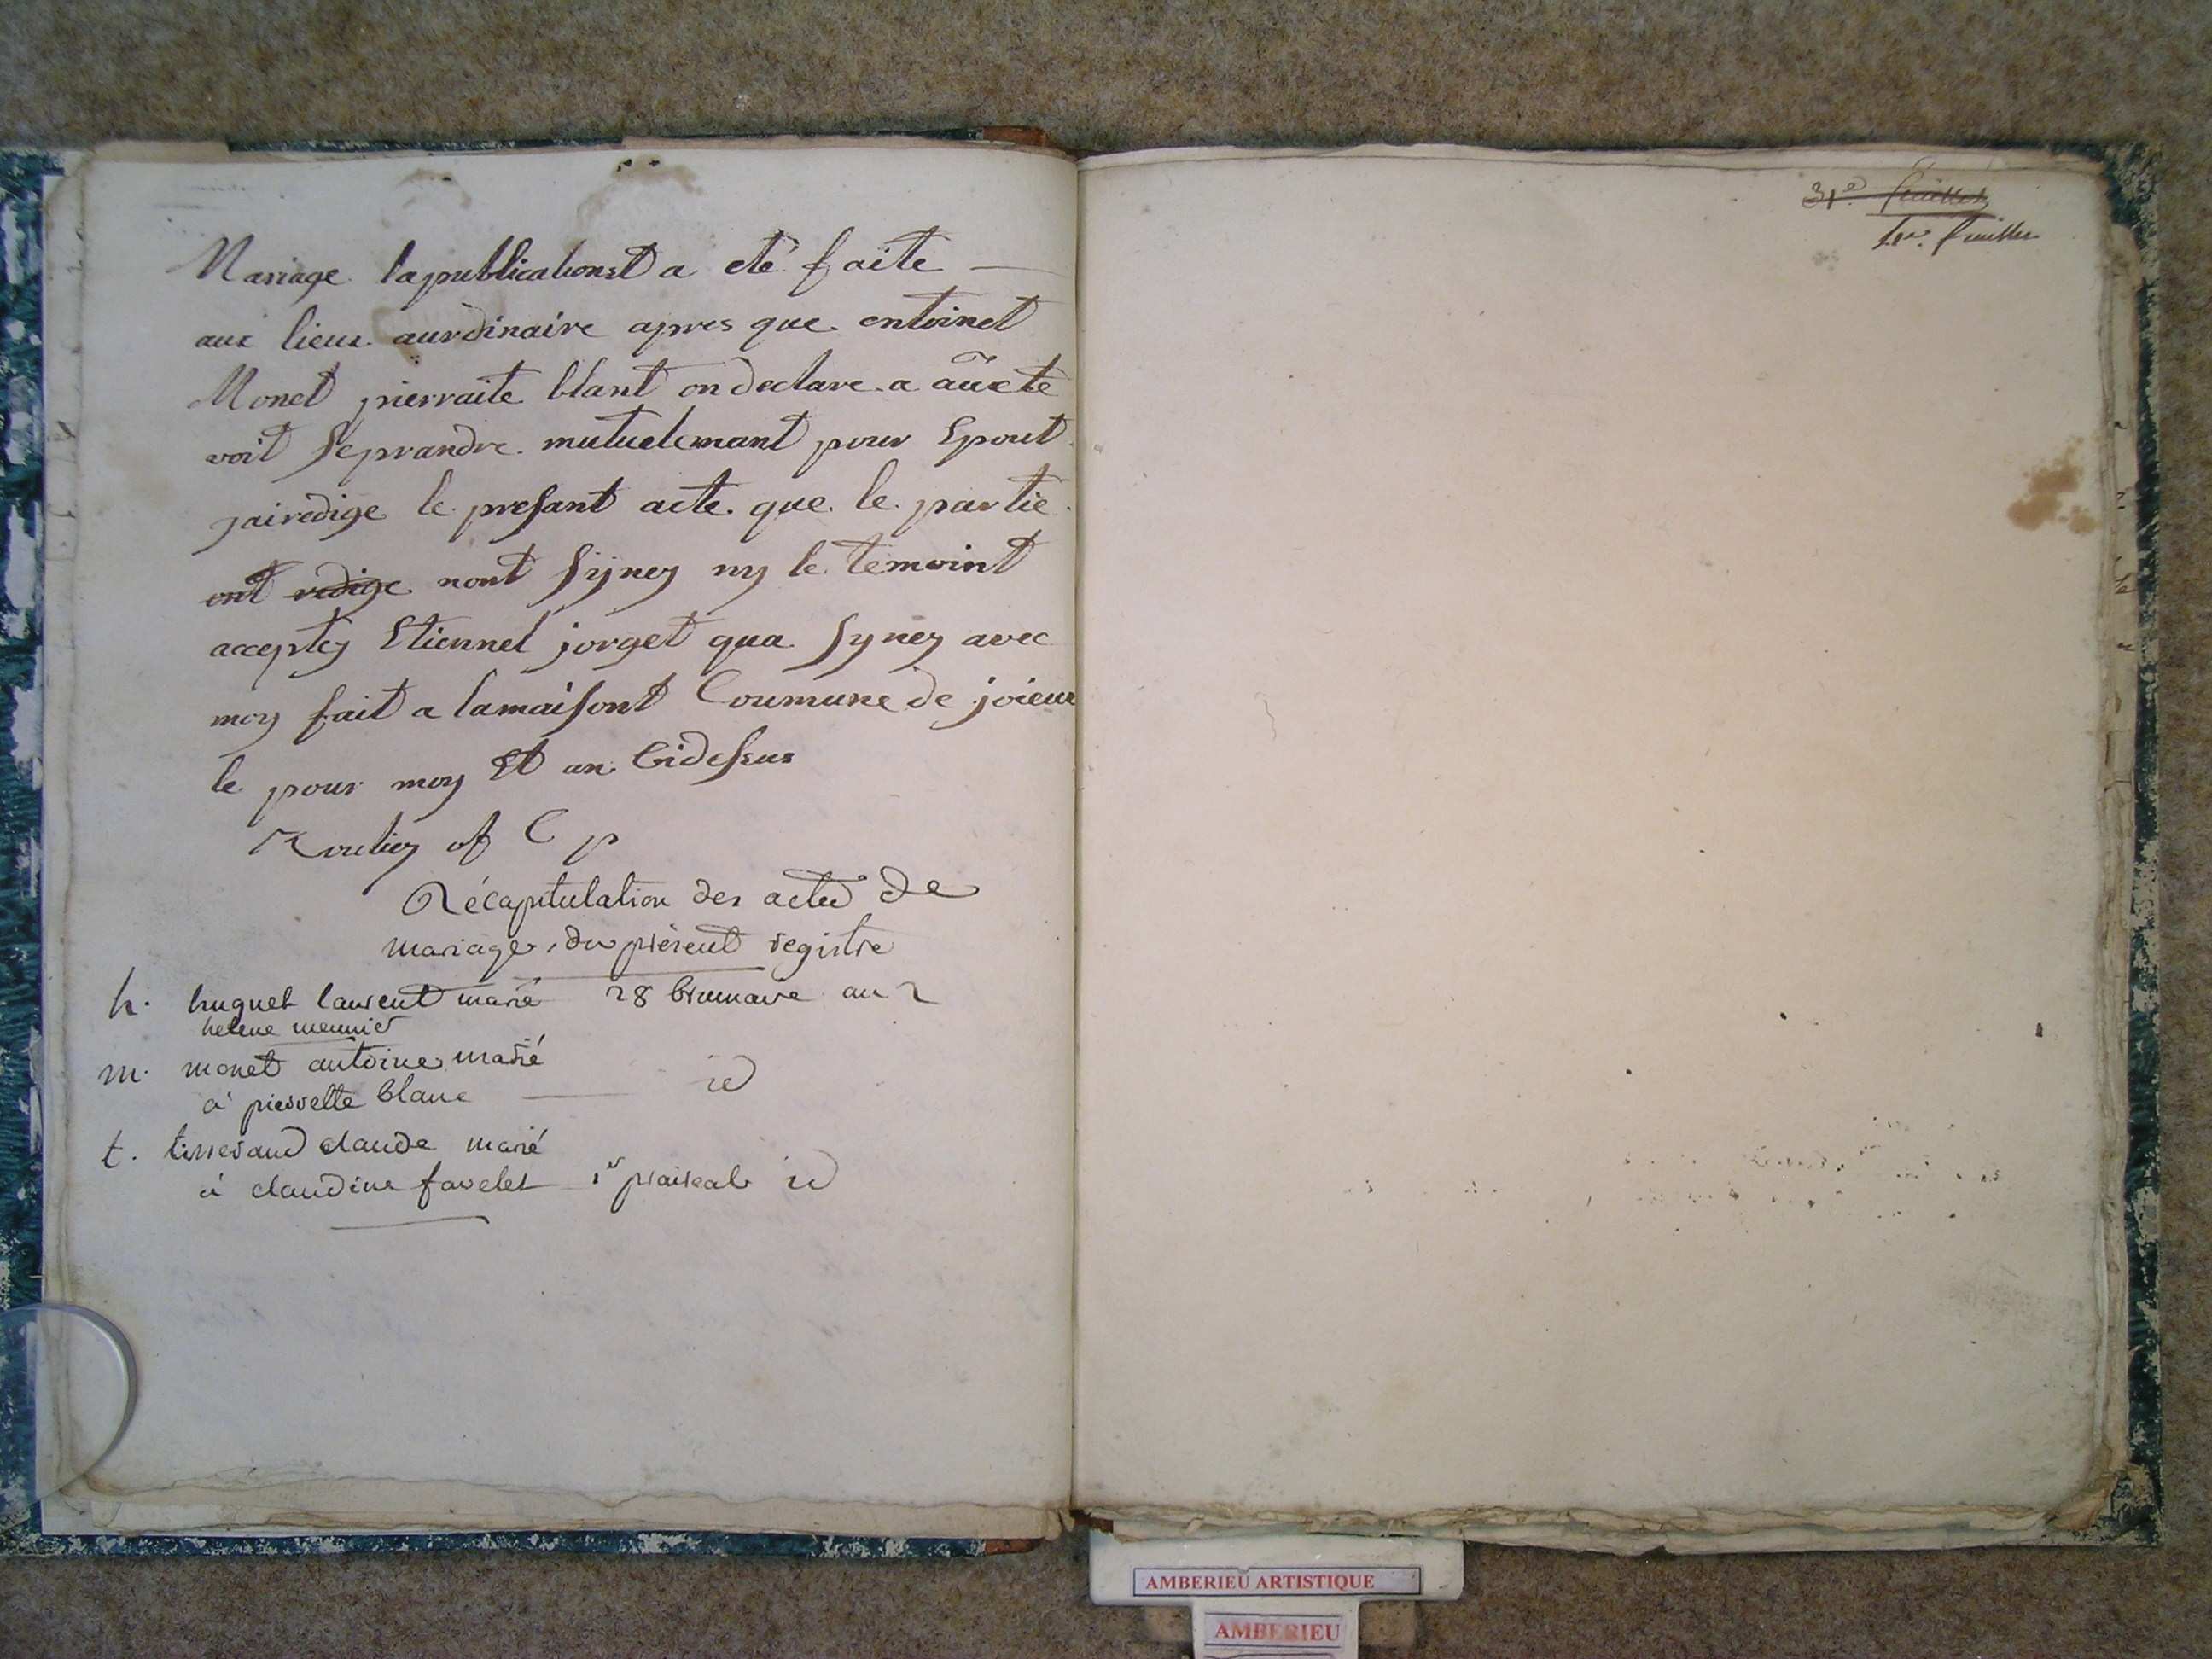 Mariage lapublicationst a eté faite
aux lieux aurdinaire apres que entoinet
Monet pierraite blant on declare a aûxte
voit seprandre mutuelemant pour Epout
jairedige le presant acte que le partie
ont redige nont syney ny le temoint
acceptey Etiennet jorget qua syney avec
moy fait a lamaisont Coumune de joieux
le pour moy Et an Cidessus
of C p
Récapitulation des actes de
mariage du présent registre
h. huguet laurent marié 28 brumaire an 2
helene meunier
m. monet antoine marié
à pierrette blanc id
t. tisserand claude marié
à claudine favelet 1er praireal id
31e feuillet
feuillet
AMBERIEU ARTISTIQUE
AMBERIEU